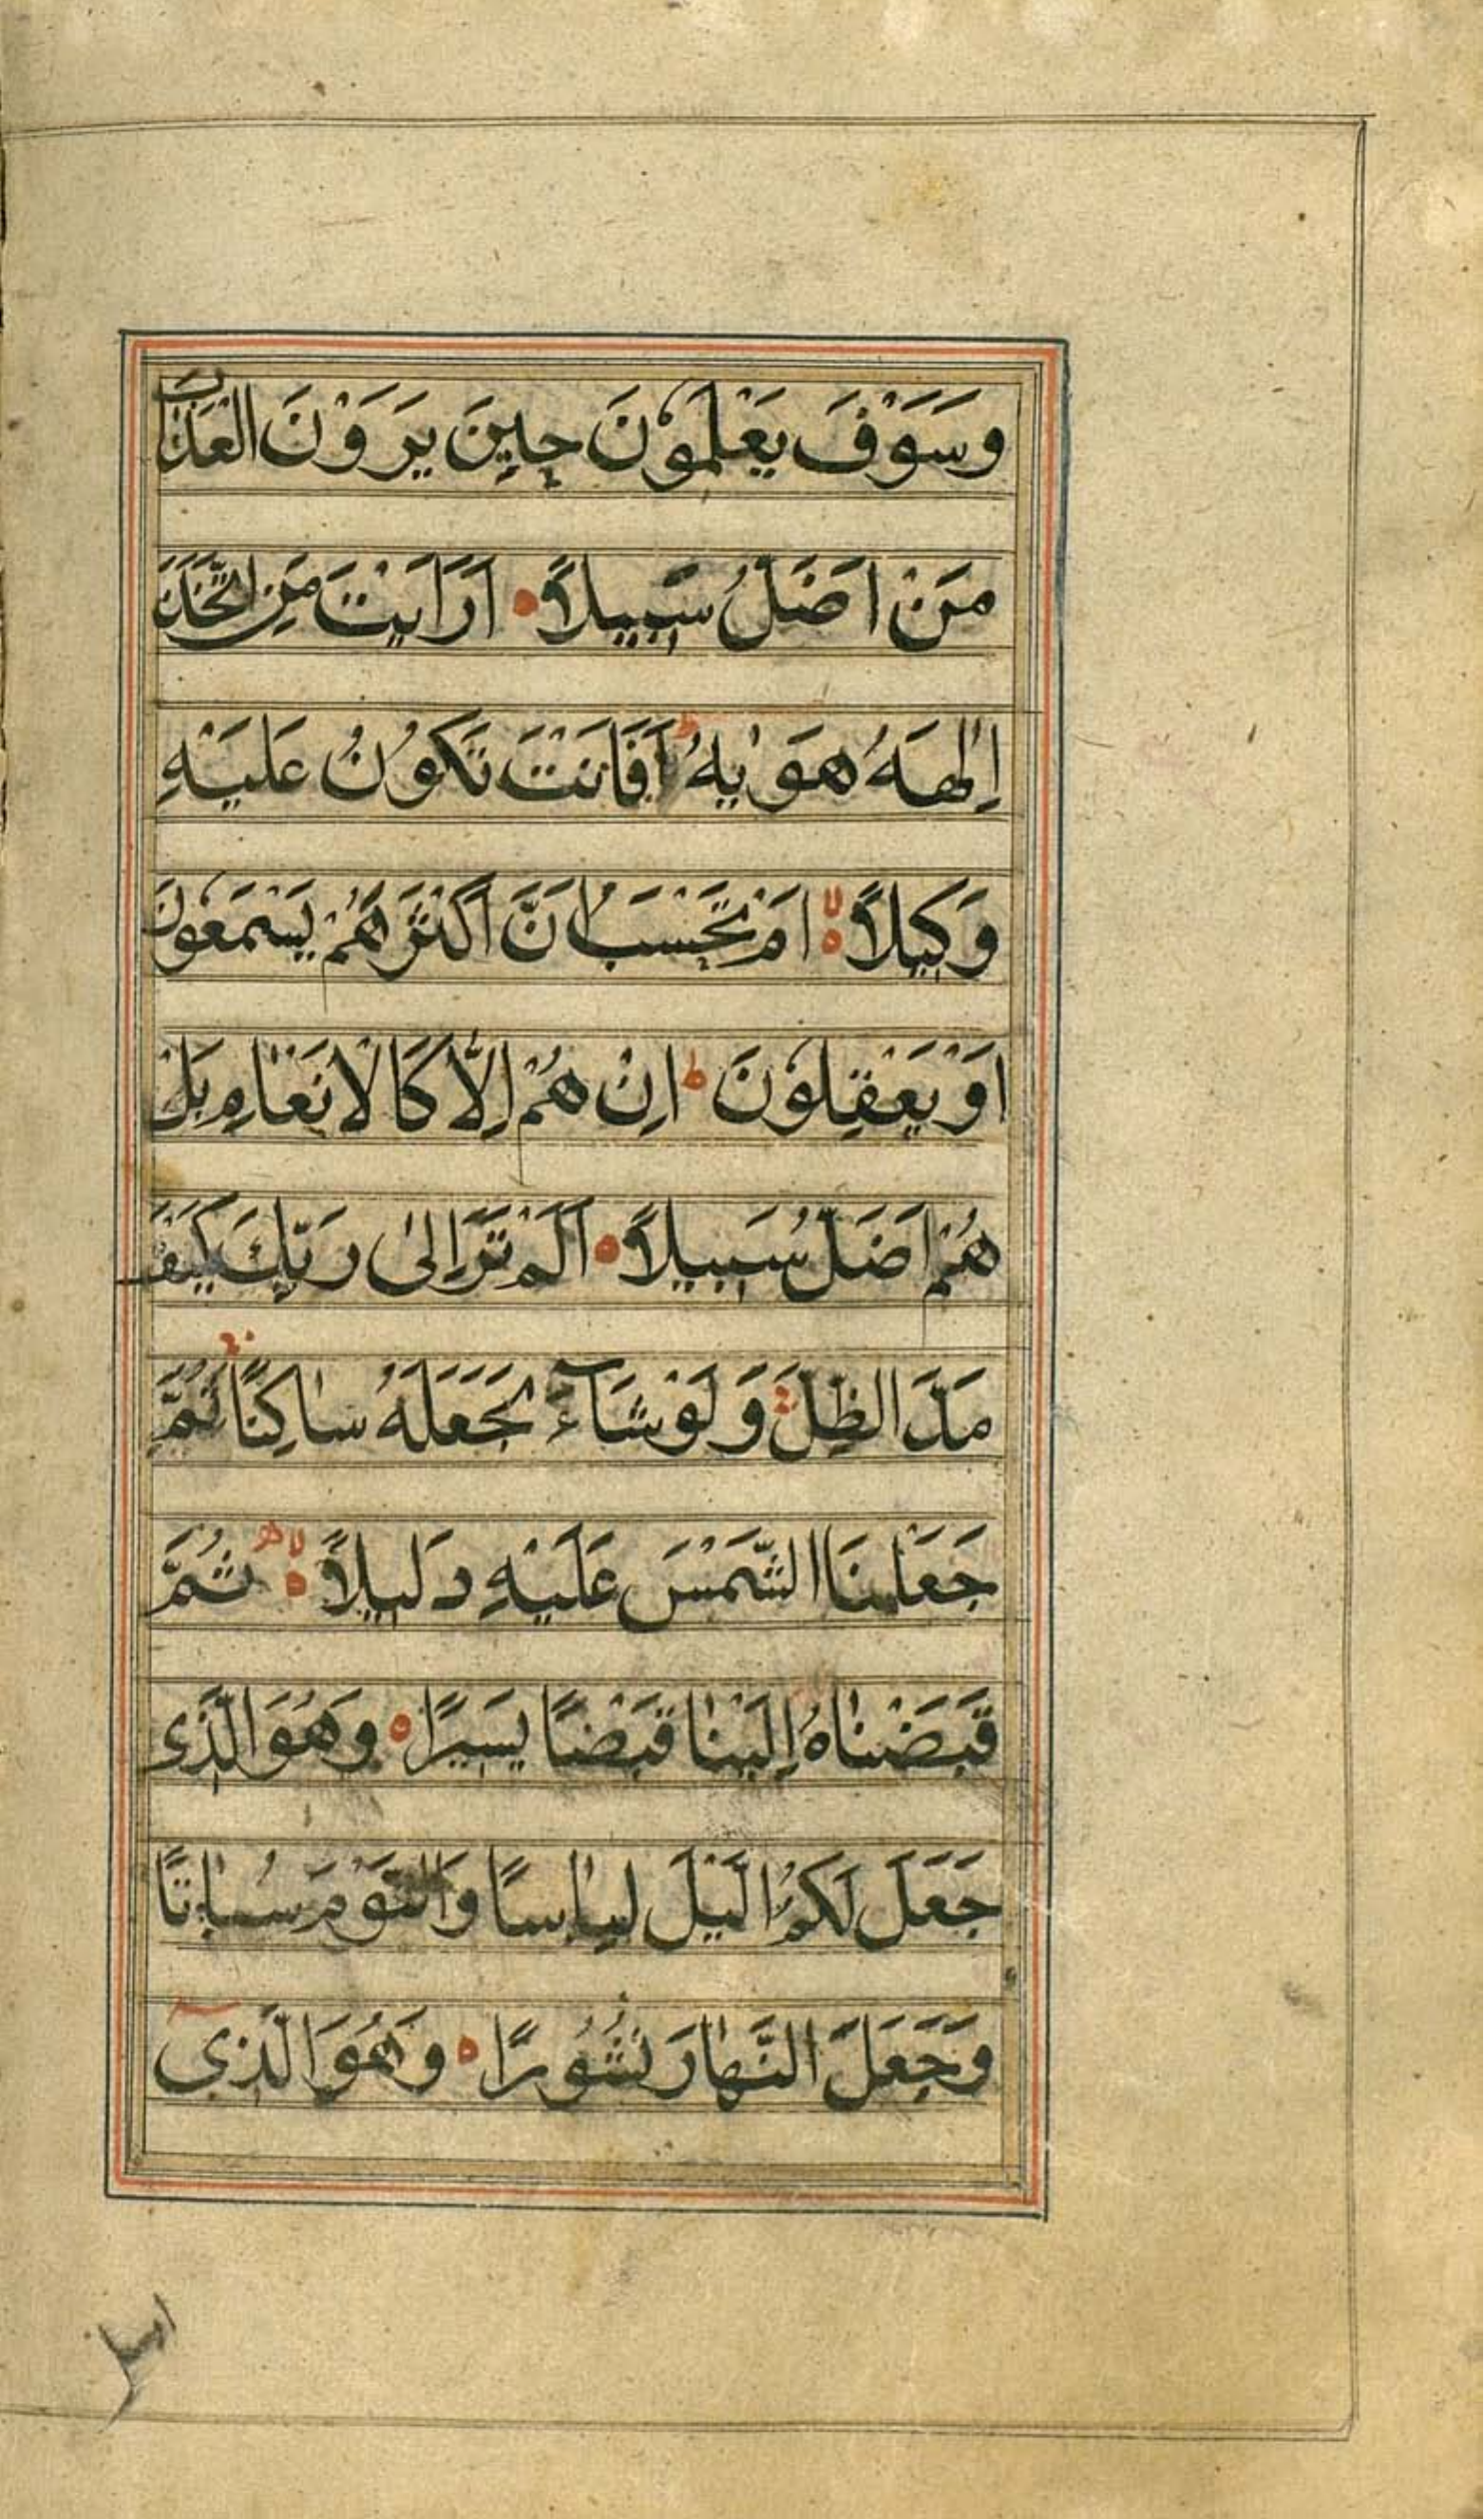 وَسَوْفَ يَعْلَمُوْنَ حِيْنَ يَرَوْنَ الْعَذَابَ
مَنْ اَضَلُّ سَبِيلًا ۝ اَرَاَيْتَ مَنِ اتَّخَذَ
اِلٰهَهُ هَوٰيهُ ط اَفَاَنْتَ تَكُوْنُ عَلَيْهِ
وَكِيلًا ۝ لا اَمْ تَحْسَبُ اَنَّ اَكْثَرَهُمْ يَسْمَعُوْنَ
اَوْ يَعْقِلُوْنَ ط اِنْ هُمْ اِلَّا كَالْاَنْعَامِ بَلْ
هُمْ اَضَلُّ سَبِيلًا ۝ اَلَمْ تَرَ اِلىٰ رَبِّكَ كَيْفَ
مَدَّ الظِّلَّ وَلَوْ شَآءَ لَجَعَلَهُ سَاكِنًا ثُمَّ
جَعَلْنَا الشَّمْسَ عَلَيْهِ دَلِيلًا ۝ لا ثُمَّ
قَبَضْنَاهُ اِلَيْنَا قَبْضًا يَسِيرًا ۝ وَهُوَ الَّذِى
جَعَلَ لَكُمُ الَّيْلَ لِبَاسًا وَالنَّوْمَ سُبَاتًا
وَجَعَلَ النَّهَارَ نُشُورًا ۝ وَهُوَ الَّذِىٓ